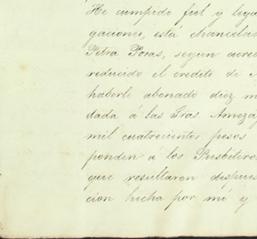 He cumpido fiel y legal
gaciones, esta chancelar
Petra Poras, segun acre
reducido el credito de
haberle abonado diez m
dada á las Sras Amoza
mil cuatrocientos pesos
ponden á los Presbiteros
que resultaron despues
cion hecha por mí y